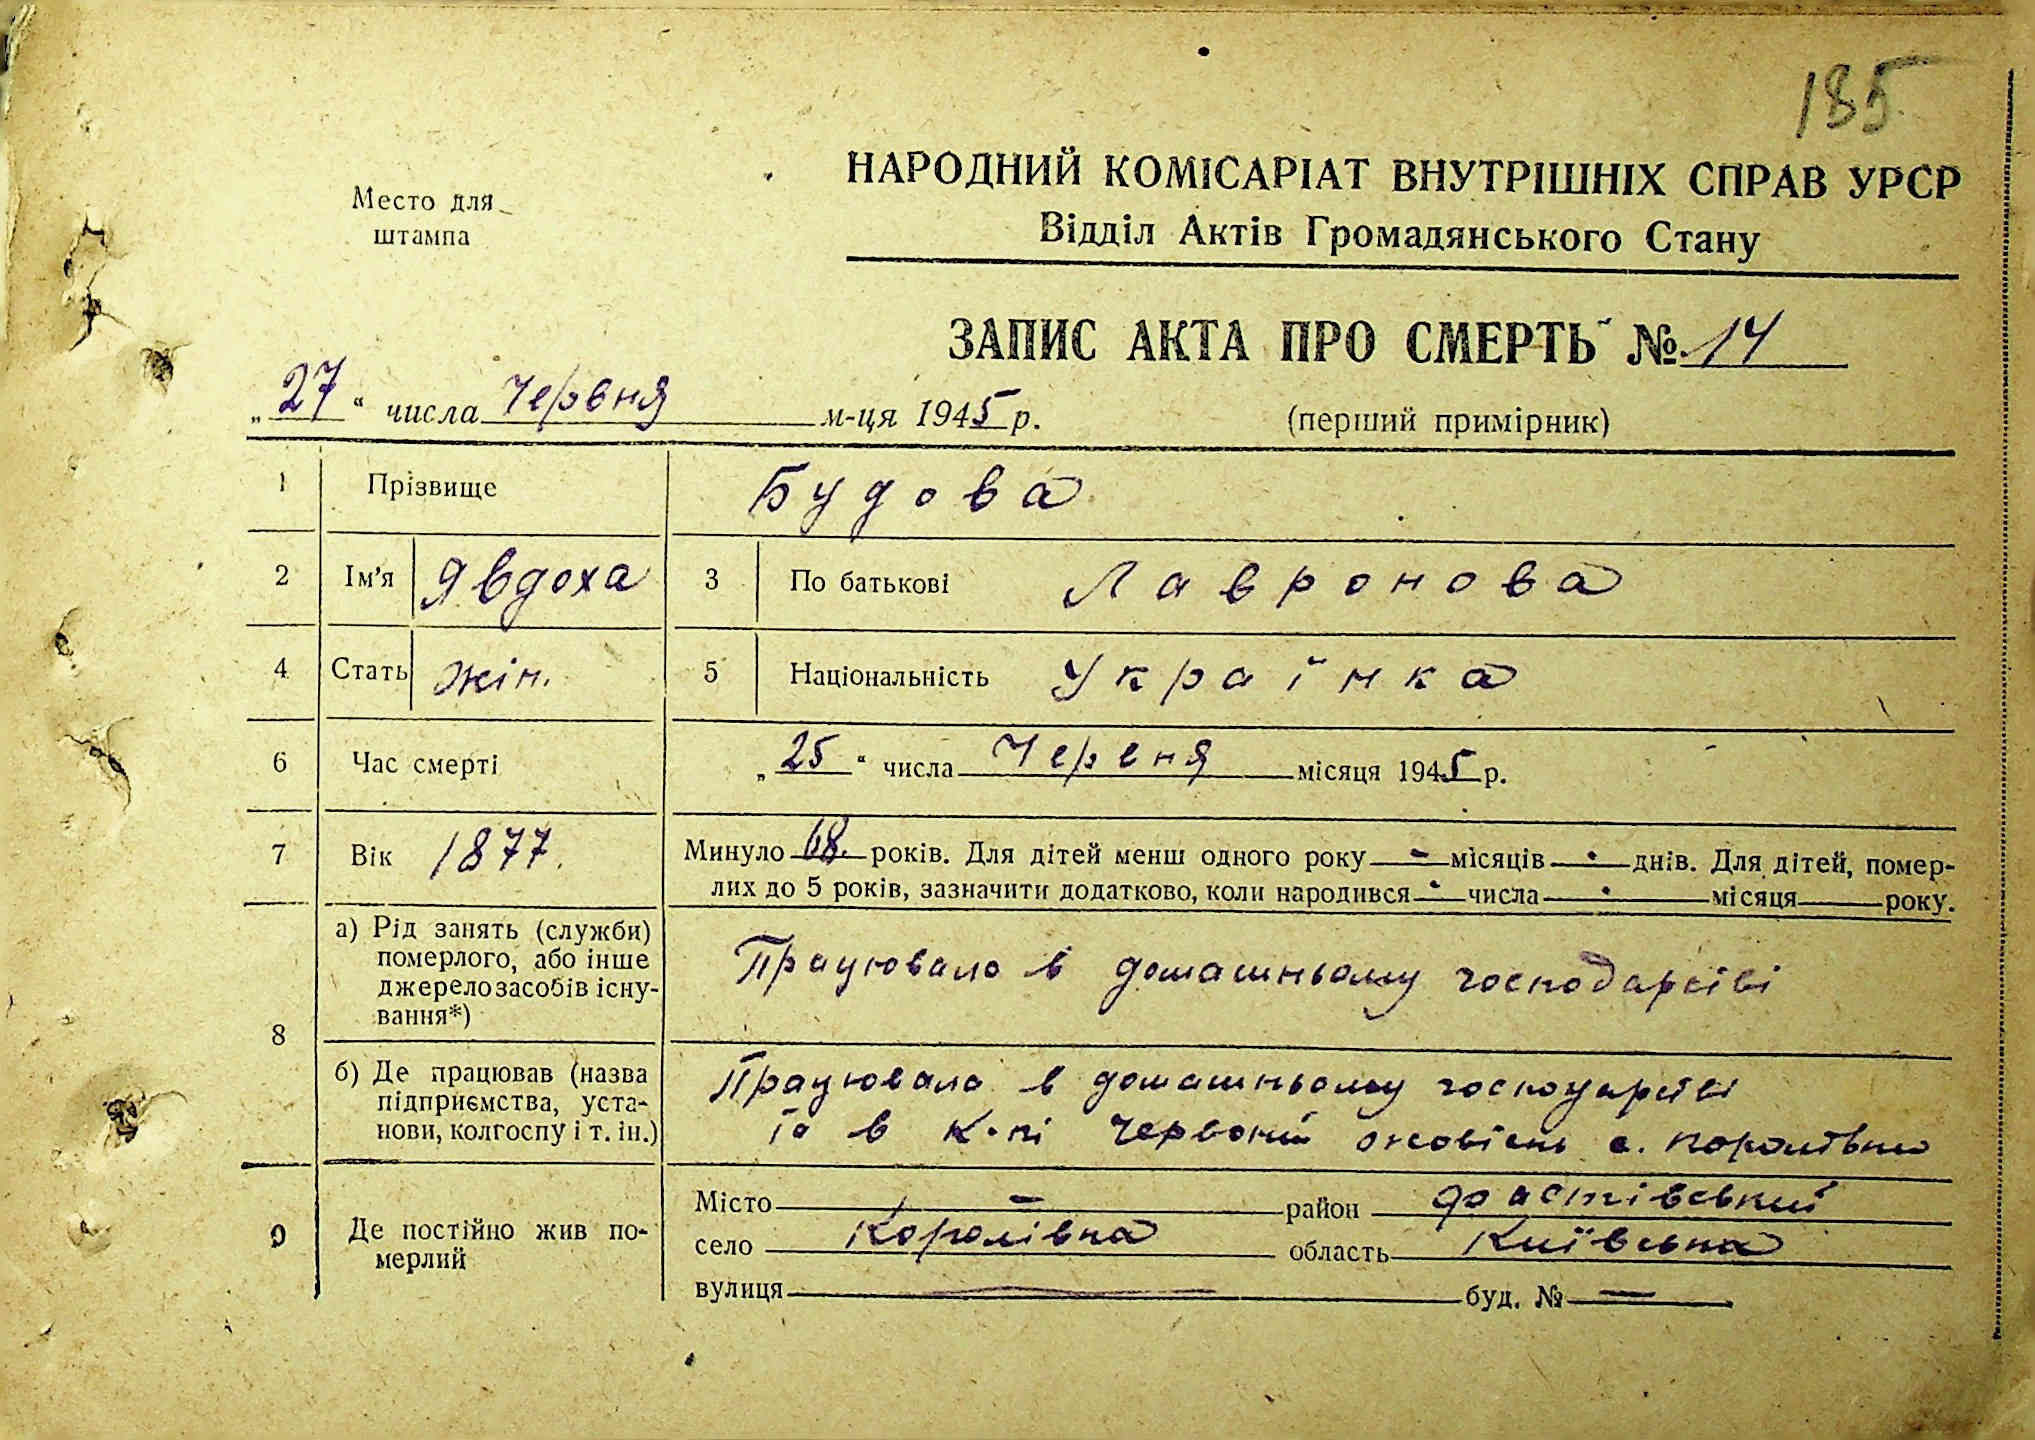 185
Место для
штампа
НАРОДНИЙ КОМІСАРІАТ ВНУТРІШНІХ СПРАВ УРСР
Відділ Актів Громадянського Стану
ЗАПИС АКТА ПРО СМЕРТЬ № 14
„27“ числа Червня м-ця 1945 р.
(перший примірник)
1 Прізвище Будова
2 Ім'я Явдоха 3 По батькові Лавронова
4 Стать жін. 5 Національність Українка
6 Час смерті „25“ числа Червня місяця 1945 р.
7 Вік 1877. Минуло 68. років. Для дітей менш одного року — місяців — днів. Для дітей, помер-
лих до 5 років, зазначити додатково, коли народився — числа — місяця — року.
8 а) Рід занять (служби)
померлого, або інше
джерело засобів існу-
вання*)
Працювала в домашньому господарстві
б) Де працював (назва
підприємства, уста-
нови, колгоспу і т. ін.)
Працювала в домашньому господарстві
та в к-пі Червоний жовтень с. Королівки
9 Де постійно жив по-
мерлий
Місто — район Фастівський
село Королівка область Київська
вулиця — буд. № —